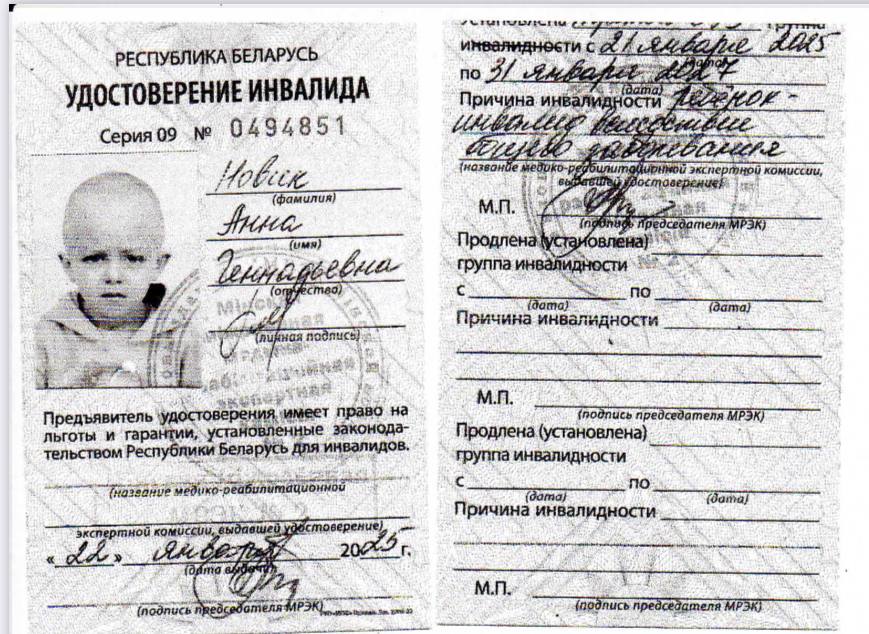 РЕСПУБЛИКА БЕЛАРУСЬ
УДОСТОВЕРЕНИЕ ИНВАЛИДА
Серия 09 № 0494851
Новик
(фамилия)
Анна
(имя)
Геннадьевна
(отчество)
(личная подпись)
Предъявитель удостоверения имеет право на
льготы и гарантии, установленные законода-
тельством Республики Беларусь для инвалидов.
(название медико-реабилитационной
экспертной комиссии, выдавшей удостоверение)
« 22 » января 2025 г.
(дата выдачи)
(подпись председателя МРЭК)
Установлена группа
инвалидности с 21 января 2025
(дата)
по 31 января 2027
(дата)
Причина инвалидности ребёнок-
инвалид вследствие
общего заболевания
(название медико-реабилитационной экспертной комиссии,
выдавшей удостоверение)
М.П.
(подпись председателя МРЭК)
Продлена (установлена)
группа инвалидности
с по
(дата) (дата)
Причина инвалидности
М.П.
(подпись председателя МРЭК)
Продлена (установлена)
группа инвалидности
с по
(дата) (дата)
Причина инвалидности
М.П.
(подпись председателя МРЭК)